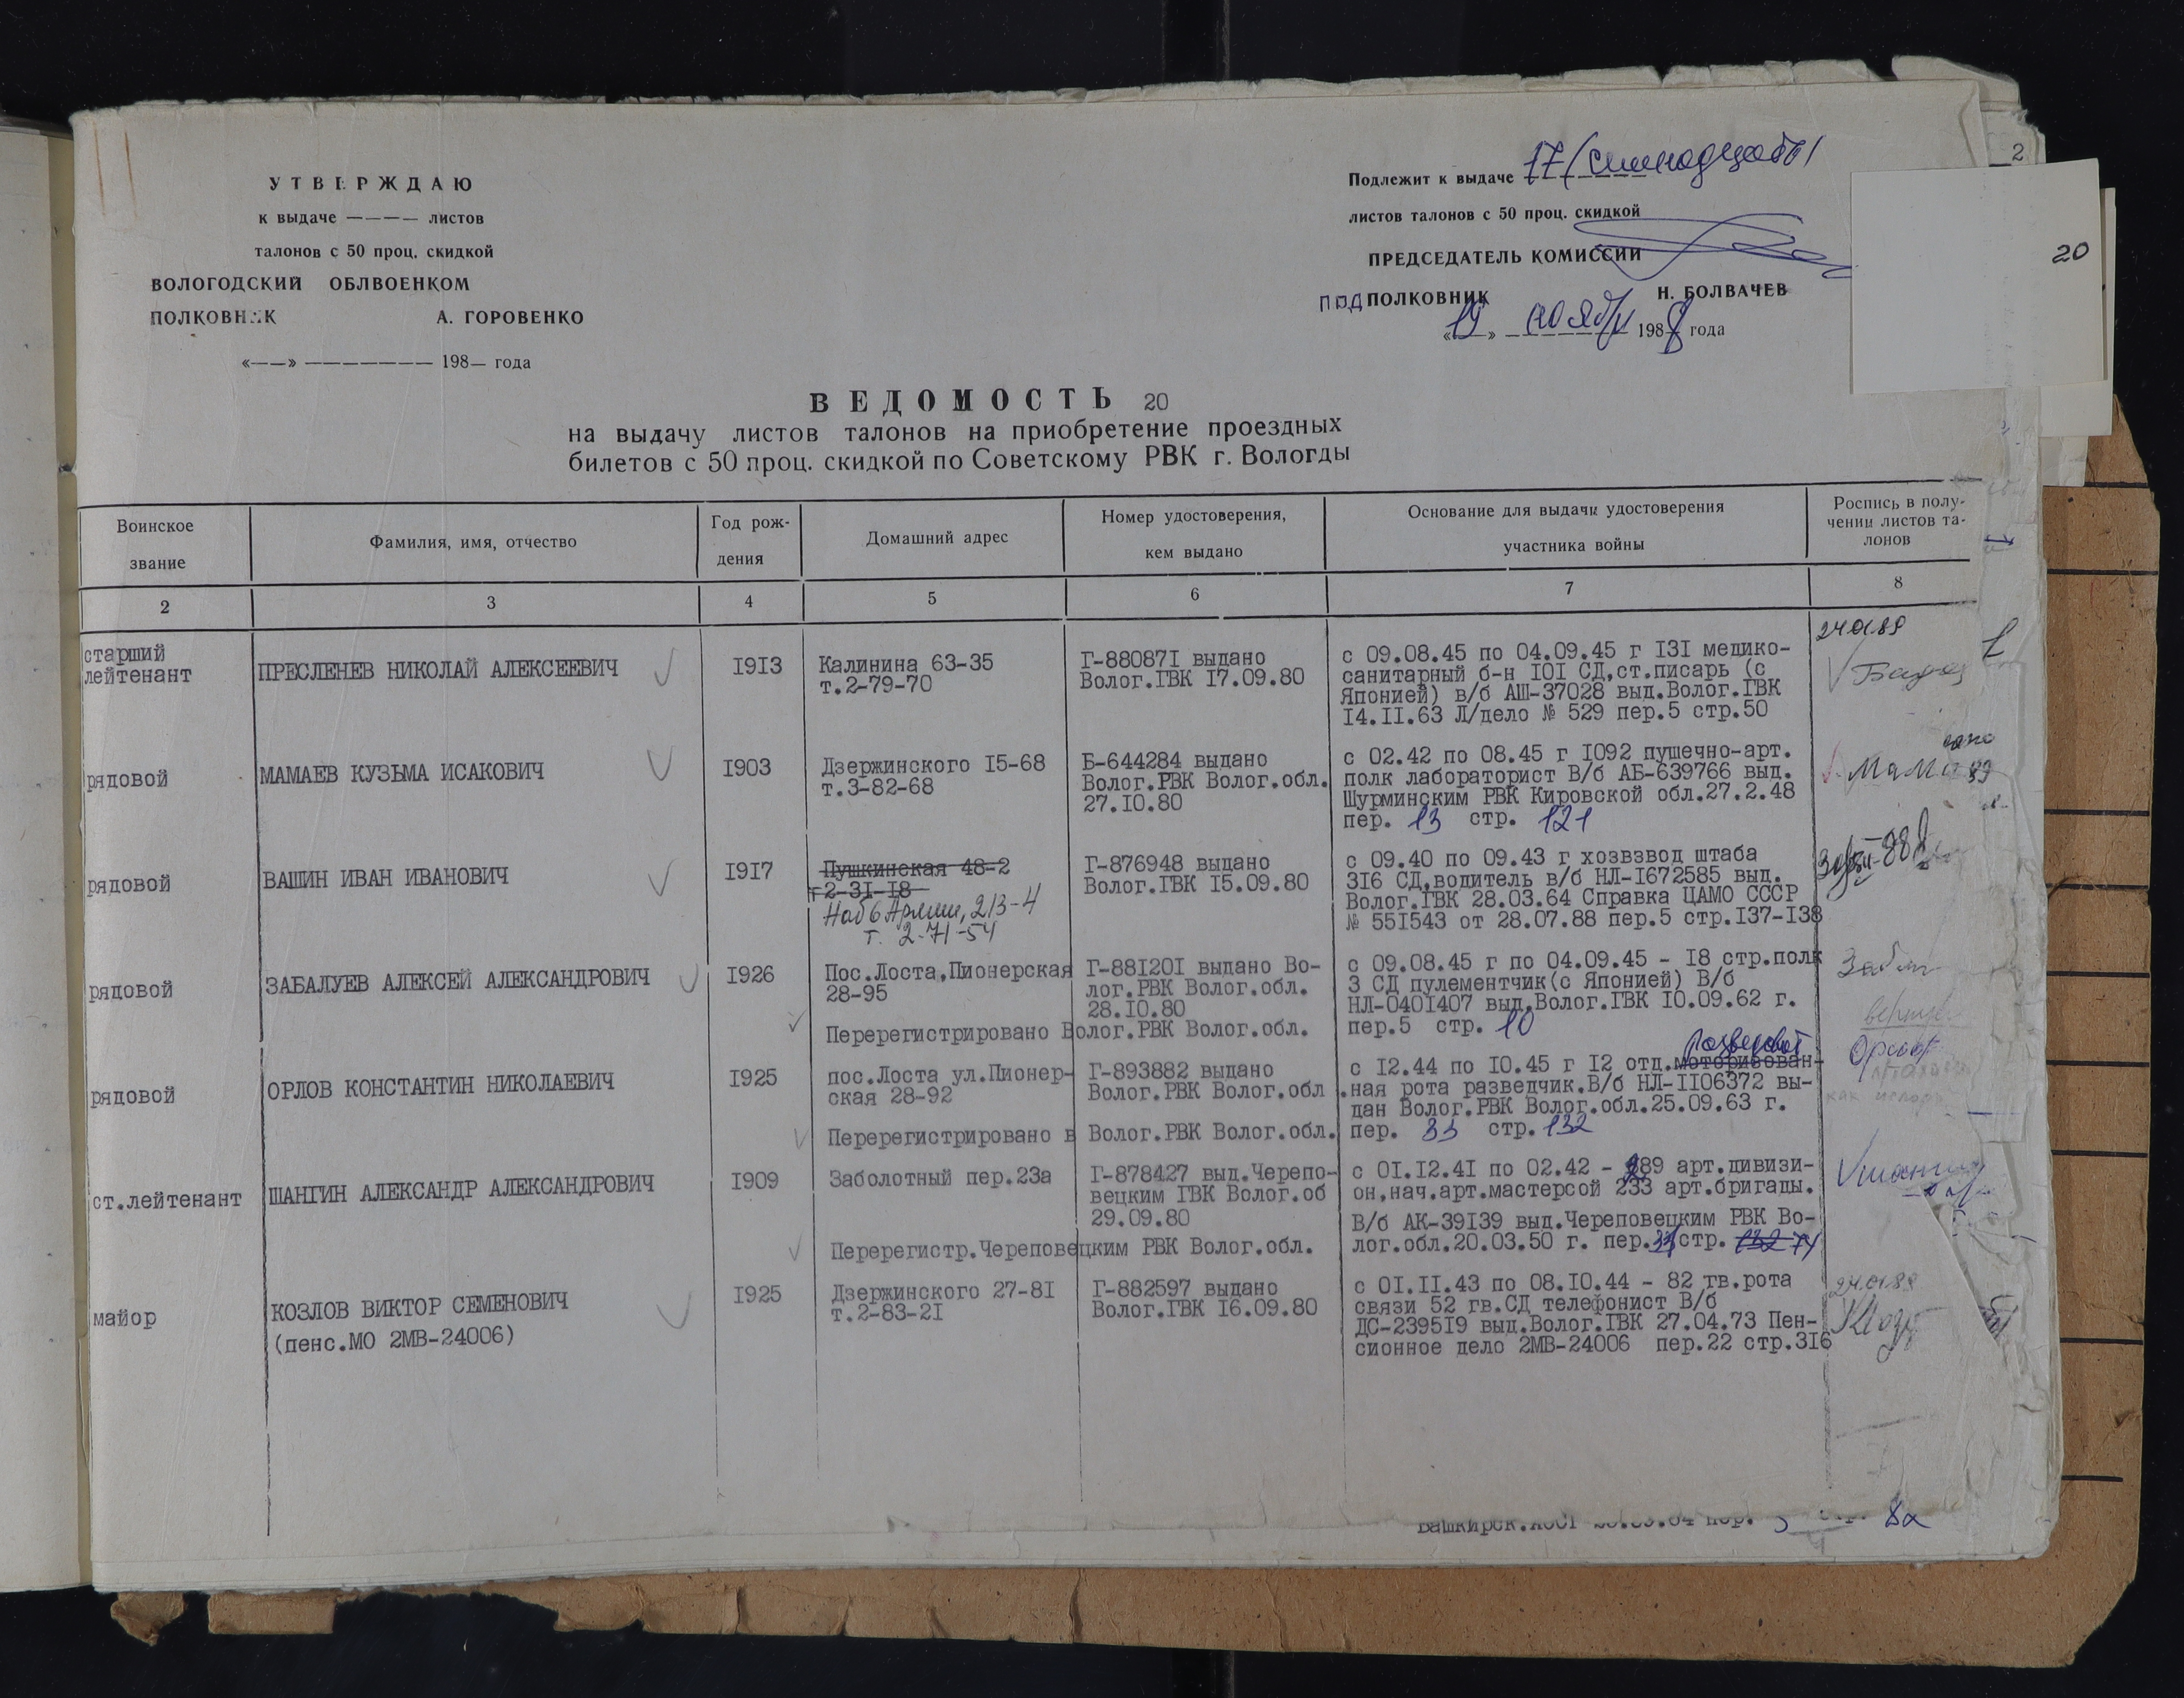 УТВЕРЖДАЮ
к выдаче ———— листов
талонов с 50 проц. скидкой
ВОЛОГОДСКИЙ ОБЛВОЕНКОМ
ПОЛКОВНИК А. ГОРОВЕНКО
«——» ——————— 198— года
Подлежит к выдаче 17 (семнадцать)
листов талонов с 50 проц. скидкой
ПРЕДСЕДАТЕЛЬ КОМИССИИ
ПОДПОЛКОВНИК Н. БОЛВАЧЕВ
«19» ноября 1988 года
2
20
ВЕДОМОСТЬ 20
на выдачу листов талонов на приобретение проездных
билетов с 50 проц. скидкой по Советскому РВК г. Вологды
Воинское
звание
Фамилия, имя, отчество
Год рож-
дения
Домашний адрес
Номер удостоверения,
кем выдано
Основание для выдачи удостоверения
участника войны
Роспись в полу-
чении листов та-
лонов
2 3 4 5 6 7 8
старший
лейтенант
ПРЕСЛЕНЕВ НИКОЛАЙ АЛЕКСЕЕВИЧ
I9I3
Калинина 63-35
т.2-79-70
Г-88087I выдано
Волог.ГВК I7.09.80
с 09.08.45 по 04.09.45 г I3I медико-
санитарный б-н I0I СД,ст.писарь (с
Японией) в/б АШ-37028 выд.Волог.ГВК
I4.II.63 Л/дело № 529 пер.5 стр.50
24.01.89
рядовой
МАМАЕВ КУЗЬМА ИСАКОВИЧ
I903
Дзержинского I5-68
т.3-82-68
Б-644284 выдано
Волог.РВК Волог.обл.
27.I0.80
с 02.42 по 08.45 г I092 пушечно-арт.
полк лабораторист В/б АБ-639766 выд.
Шурминским РВК Кировской обл.27.2.48
пер. 13 стр. 121
рядовой
ВАШИН ИВАН ИВАНОВИЧ
I9I7
Пушкинская 48-2
т2-3I-I8
Наб 6 Армии, 213-4
т. 2-71-54
Г-876948 выдано
Волог.ГВК I5.09.80
с 09.40 по 09.43 г хозвзвод штаба
3I6 СД,водитель в/б НЛ-I672585 выд.
Волог.ГВК 28.03.64 Справка ЦАМО СССР
№ 55I543 от 28.07.88 пер.5 стр.I37-I38
рядовой
ЗАБАЛУЕВ АЛЕКСЕЙ АЛЕКСАНДРОВИЧ
I926
Пос.Лоста,Пионерская
28-95
Г-88I20I выдано Во-
лог.РВК Волог.обл.
28.I0.80
Перерегистрировано Волог.РВК Волог.обл.
с 09.08.45 г по 04.09.45 - I8 стр.полк
3 СД пулементчик(с Японией) В/б
НЛ-040I407 выд.Волог.ГВК I0.09.62 г.
пер.5 стр. 10
рядовой
ОРЛОВ КОНСТАНТИН НИКОЛАЕВИЧ
I925
пос.Лоста ул.Пионер-
ская 28-92
Г-893882 выдано
Волог.РВК Волог.обл.
Перерегистрировано в Волог.РВК Волог.обл.
с I2.44 по I0.45 г I2 отд.моторизован-
ная рота разведчик.В/б НЛ-II06372 вы-
дан Волог.РВК Волог.обл.25.09.63 г.
пер. 33 стр. 132
ст.лейтенант
ШАНГИН АЛЕКСАНДР АЛЕКСАНДРОВИЧ
I909
Заболотный пер.23а
Г-878427 выд.Черепо-
вецким ГВК Волог.об
29.09.80
Перерегистр.Череповецким РВК Волог.обл.
с 0I.I2.4I по 02.42 - 889 арт.дивизи-
он,нач.арт.мастерсой 233 арт.бригады.
В/б АК-39I39 выд.Череповецким РВК Во-
лог.обл.20.03.50 г. пер. стр. 132 74
майор
КОЗЛОВ ВИКТОР СЕМЕНОВИЧ
(пенс.МО 2МВ-24006)
I925
Дзержинского 27-8I
т.2-83-2I
Г-882597 выдано
Волог.ГВК I6.09.80
с 0I.II.43 по 08.I0.44 - 82 гв.рота
связи 52 гв.СД телефонист В/б
ДС-2395I9 выд.Волог.ГВК 27.04.73 Пен-
сионное дело 2МВ-24006 пер.22 стр.3I6
24.01.89